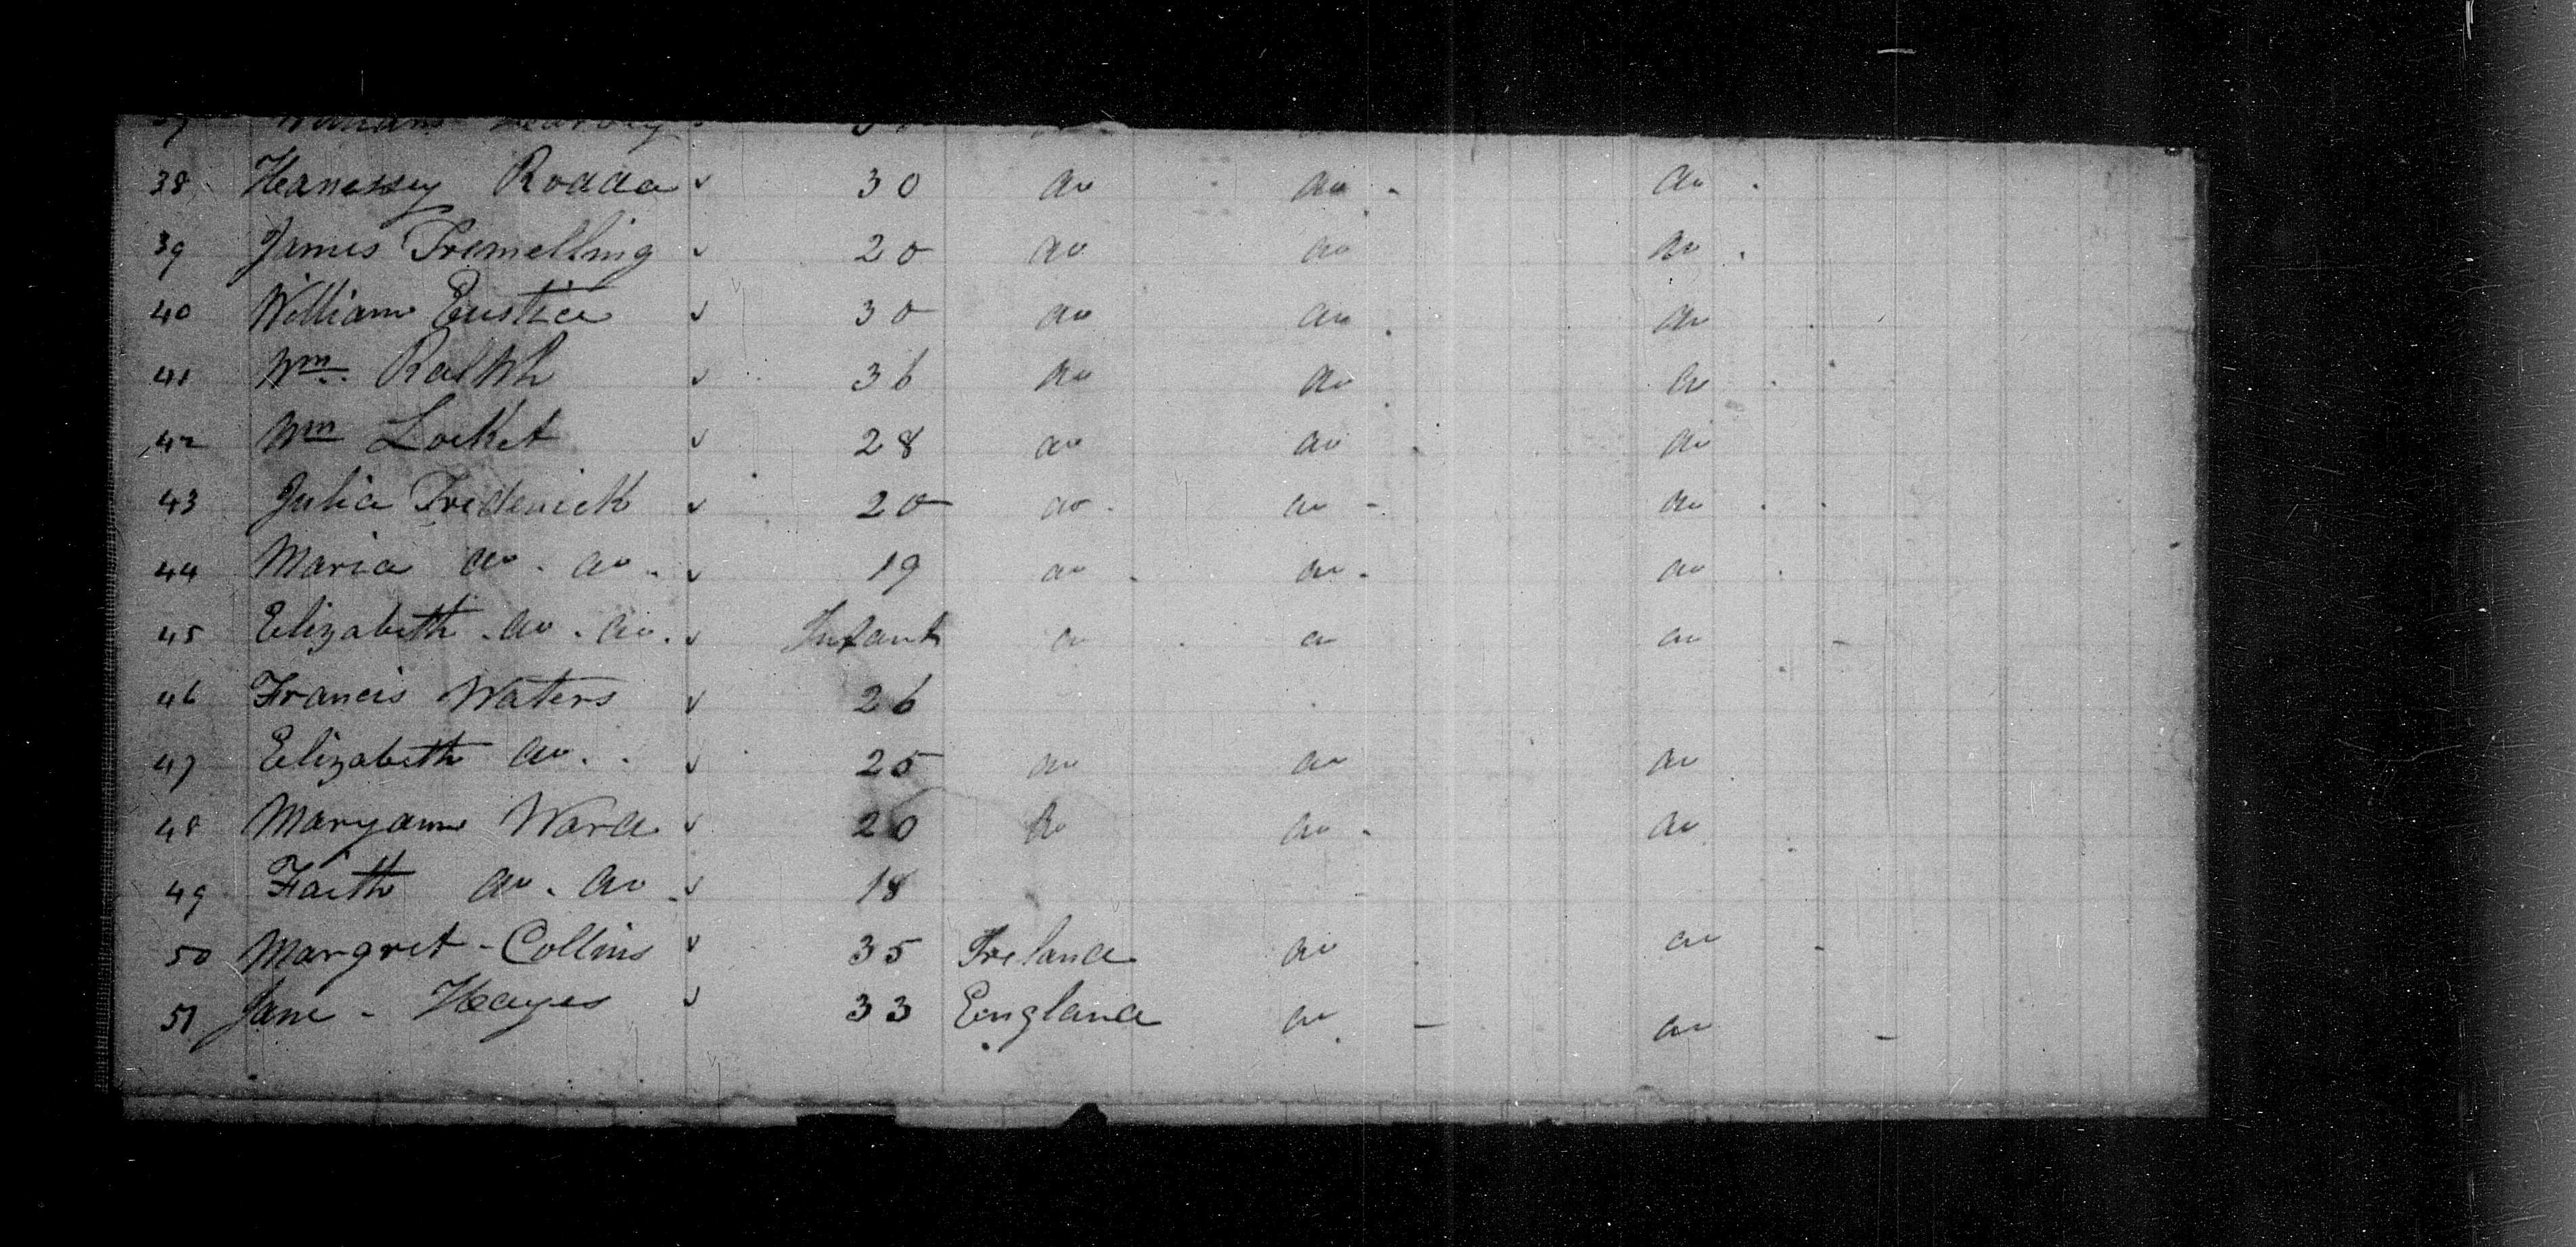 William
38 Hanessey Rodda 30 do do do
39 James Tremelling 20 do do do
40 William Eustice 30 do do do
41 Wm. Ralph 36 do do do
42 Wm Locket 28 do do do
43 Julia Frederick 20 do do do
44 Maria do. do. 19 do do do
45 Elizabeth do. do. Infant do do do
46 Francis Waters 26
47 Elizabeth do. 25 do do do
48 Maryann Ward 20 do do do
49 Faith do. do 18
50 Margret - Collins 35 Ireland do do
51 Jane - Hayes 33 England do do